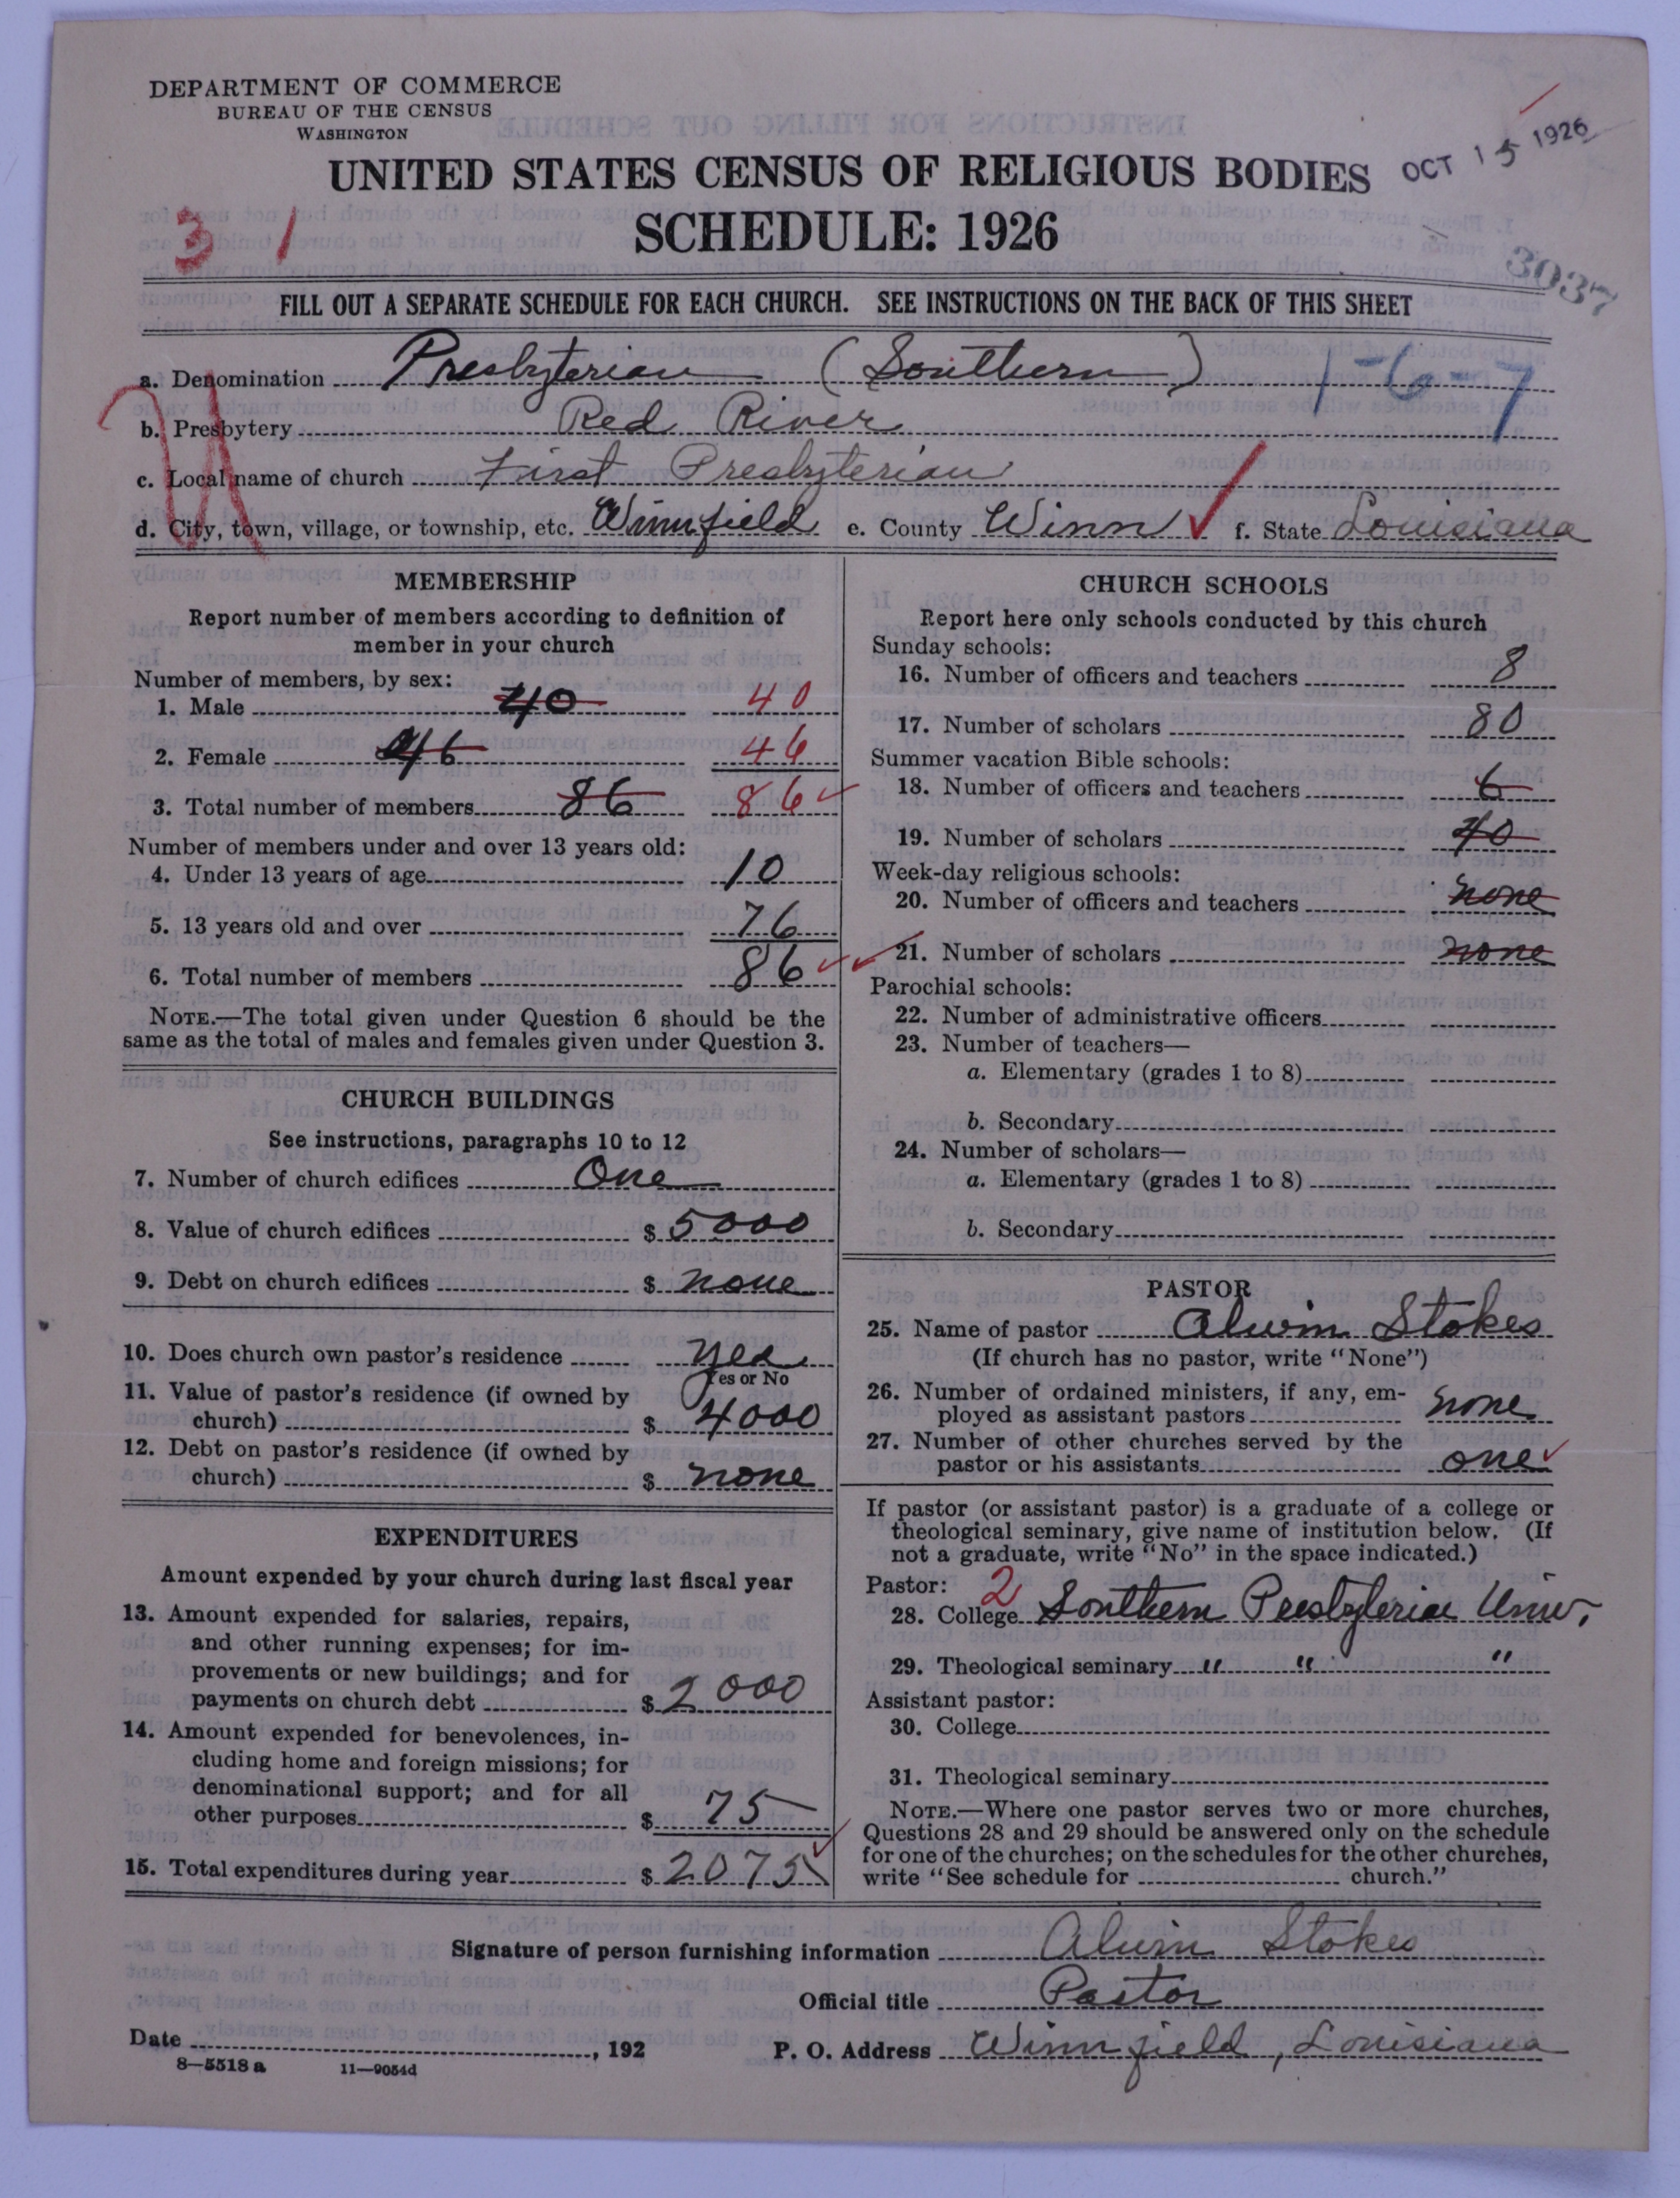 DEPARTMENT OF COMMERCE
BUREAU OF THE CENSUS
WASHINGTON
UNITED STATES CENSUS OF RELIGIOUS BODIES
OCT 15 1926
SCHEDULE: 1926
3 1
3037
FILL OUT A SEPARATE SCHEDULE FOR EACH CHURCH. SEE INSTRUCTIONS ON THE BACK OF THIS SHEET
a. Denomination Presbyterian (Southern) 1-6-7
b. Presbytery Red River
c. Local name of church First Presbyterian
d. City, town, village, or township, etc. Winnfield e. County Winn f. State Louisiana
MEMBERSHIP
Report number of members according to definition of
member in your church
Number of members, by sex:
1. Male 40 40
2. Female 46 46
3. Total number of members 86 86
Number of members under and over 13 years old:
4. Under 13 years of age 10
5. 13 years old and over 76
6. Total number of members 86
NOTE.—The total given under Question 6 should be the
same as the total of males and females given under Question 3.
CHURCH BUILDINGS
See instructions, paragraphs 10 to 12
7. Number of church edifices One
8. Value of church edifices $ 5000
9. Debt on church edifices $ none
10. Does church own pastor's residence yes
Yes or No
11. Value of pastor's residence (if owned by
church) $ 4000
12. Debt on pastor's residence (if owned by
church) $ none
EXPENDITURES
Amount expended by your church during last fiscal year
13. Amount expended for salaries, repairs,
and other running expenses; for im-
provements or new buildings; and for
payments on church debt $ 2000
14. Amount expended for benevolences, in-
cluding home and foreign missions; for
denominational support; and for all
other purposes $ 75
15. Total expenditures during year $ 2075
CHURCH SCHOOLS
Report here only schools conducted by this church
Sunday schools:
16. Number of officers and teachers 8
17. Number of scholars 80
Summer vacation Bible schools:
18. Number of officers and teachers 6
19. Number of scholars 40
Week-day religious schools:
20. Number of officers and teachers none
21. Number of scholars none
Parochial schools:
22. Number of administrative officers
23. Number of teachers—
a. Elementary (grades 1 to 8)
b. Secondary
24. Number of scholars—
a. Elementary (grades 1 to 8)
b. Secondary
PASTOR
25. Name of pastor Alwin Stokes
(If church has no pastor, write "None")
26. Number of ordained ministers, if any, em-
ployed as assistant pastors none
27. Number of other churches served by the
pastor or his assistants one
If pastor (or assistant pastor) is a graduate of a college or
theological seminary, give name of institution below. (If
not a graduate, write "No" in the space indicated.)
Pastor: 2
28. College Southern Presbyterian Univ.
29. Theological seminary " " "
Assistant pastor:
30. College
31. Theological seminary
NOTE.—Where one pastor serves two or more churches,
Questions 28 and 29 should be answered only on the schedule
for one of the churches; on the schedules for the other churches,
write "See schedule for church."
Signature of person furnishing information Alwin Stokes
Official title Pastor
Date , 192
P. O. Address Winnfield, Louisiana
8—5518 a 11—9054d